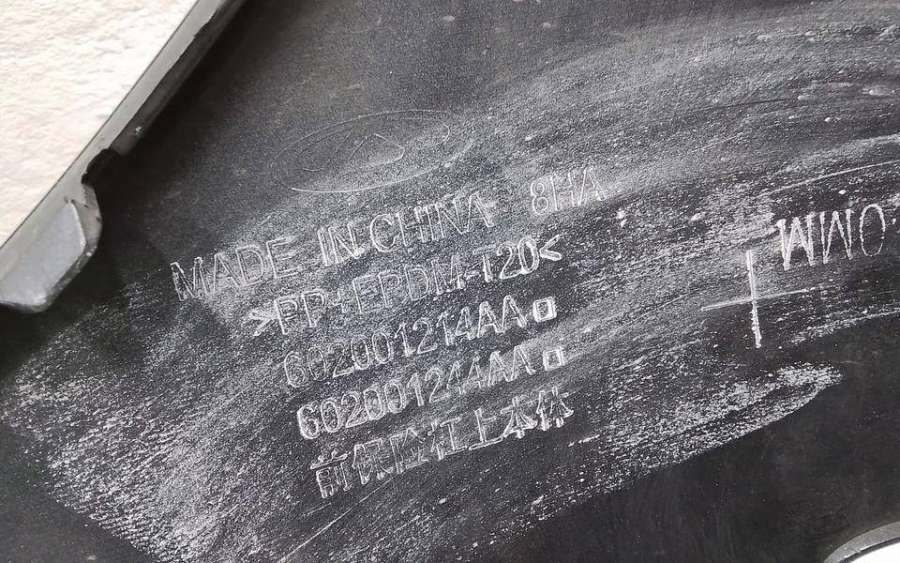 MADE IN CHINA 8HA
>PP+EPDM-T20<
602001214AA
602001244AA
前保险杠上本体
OMM